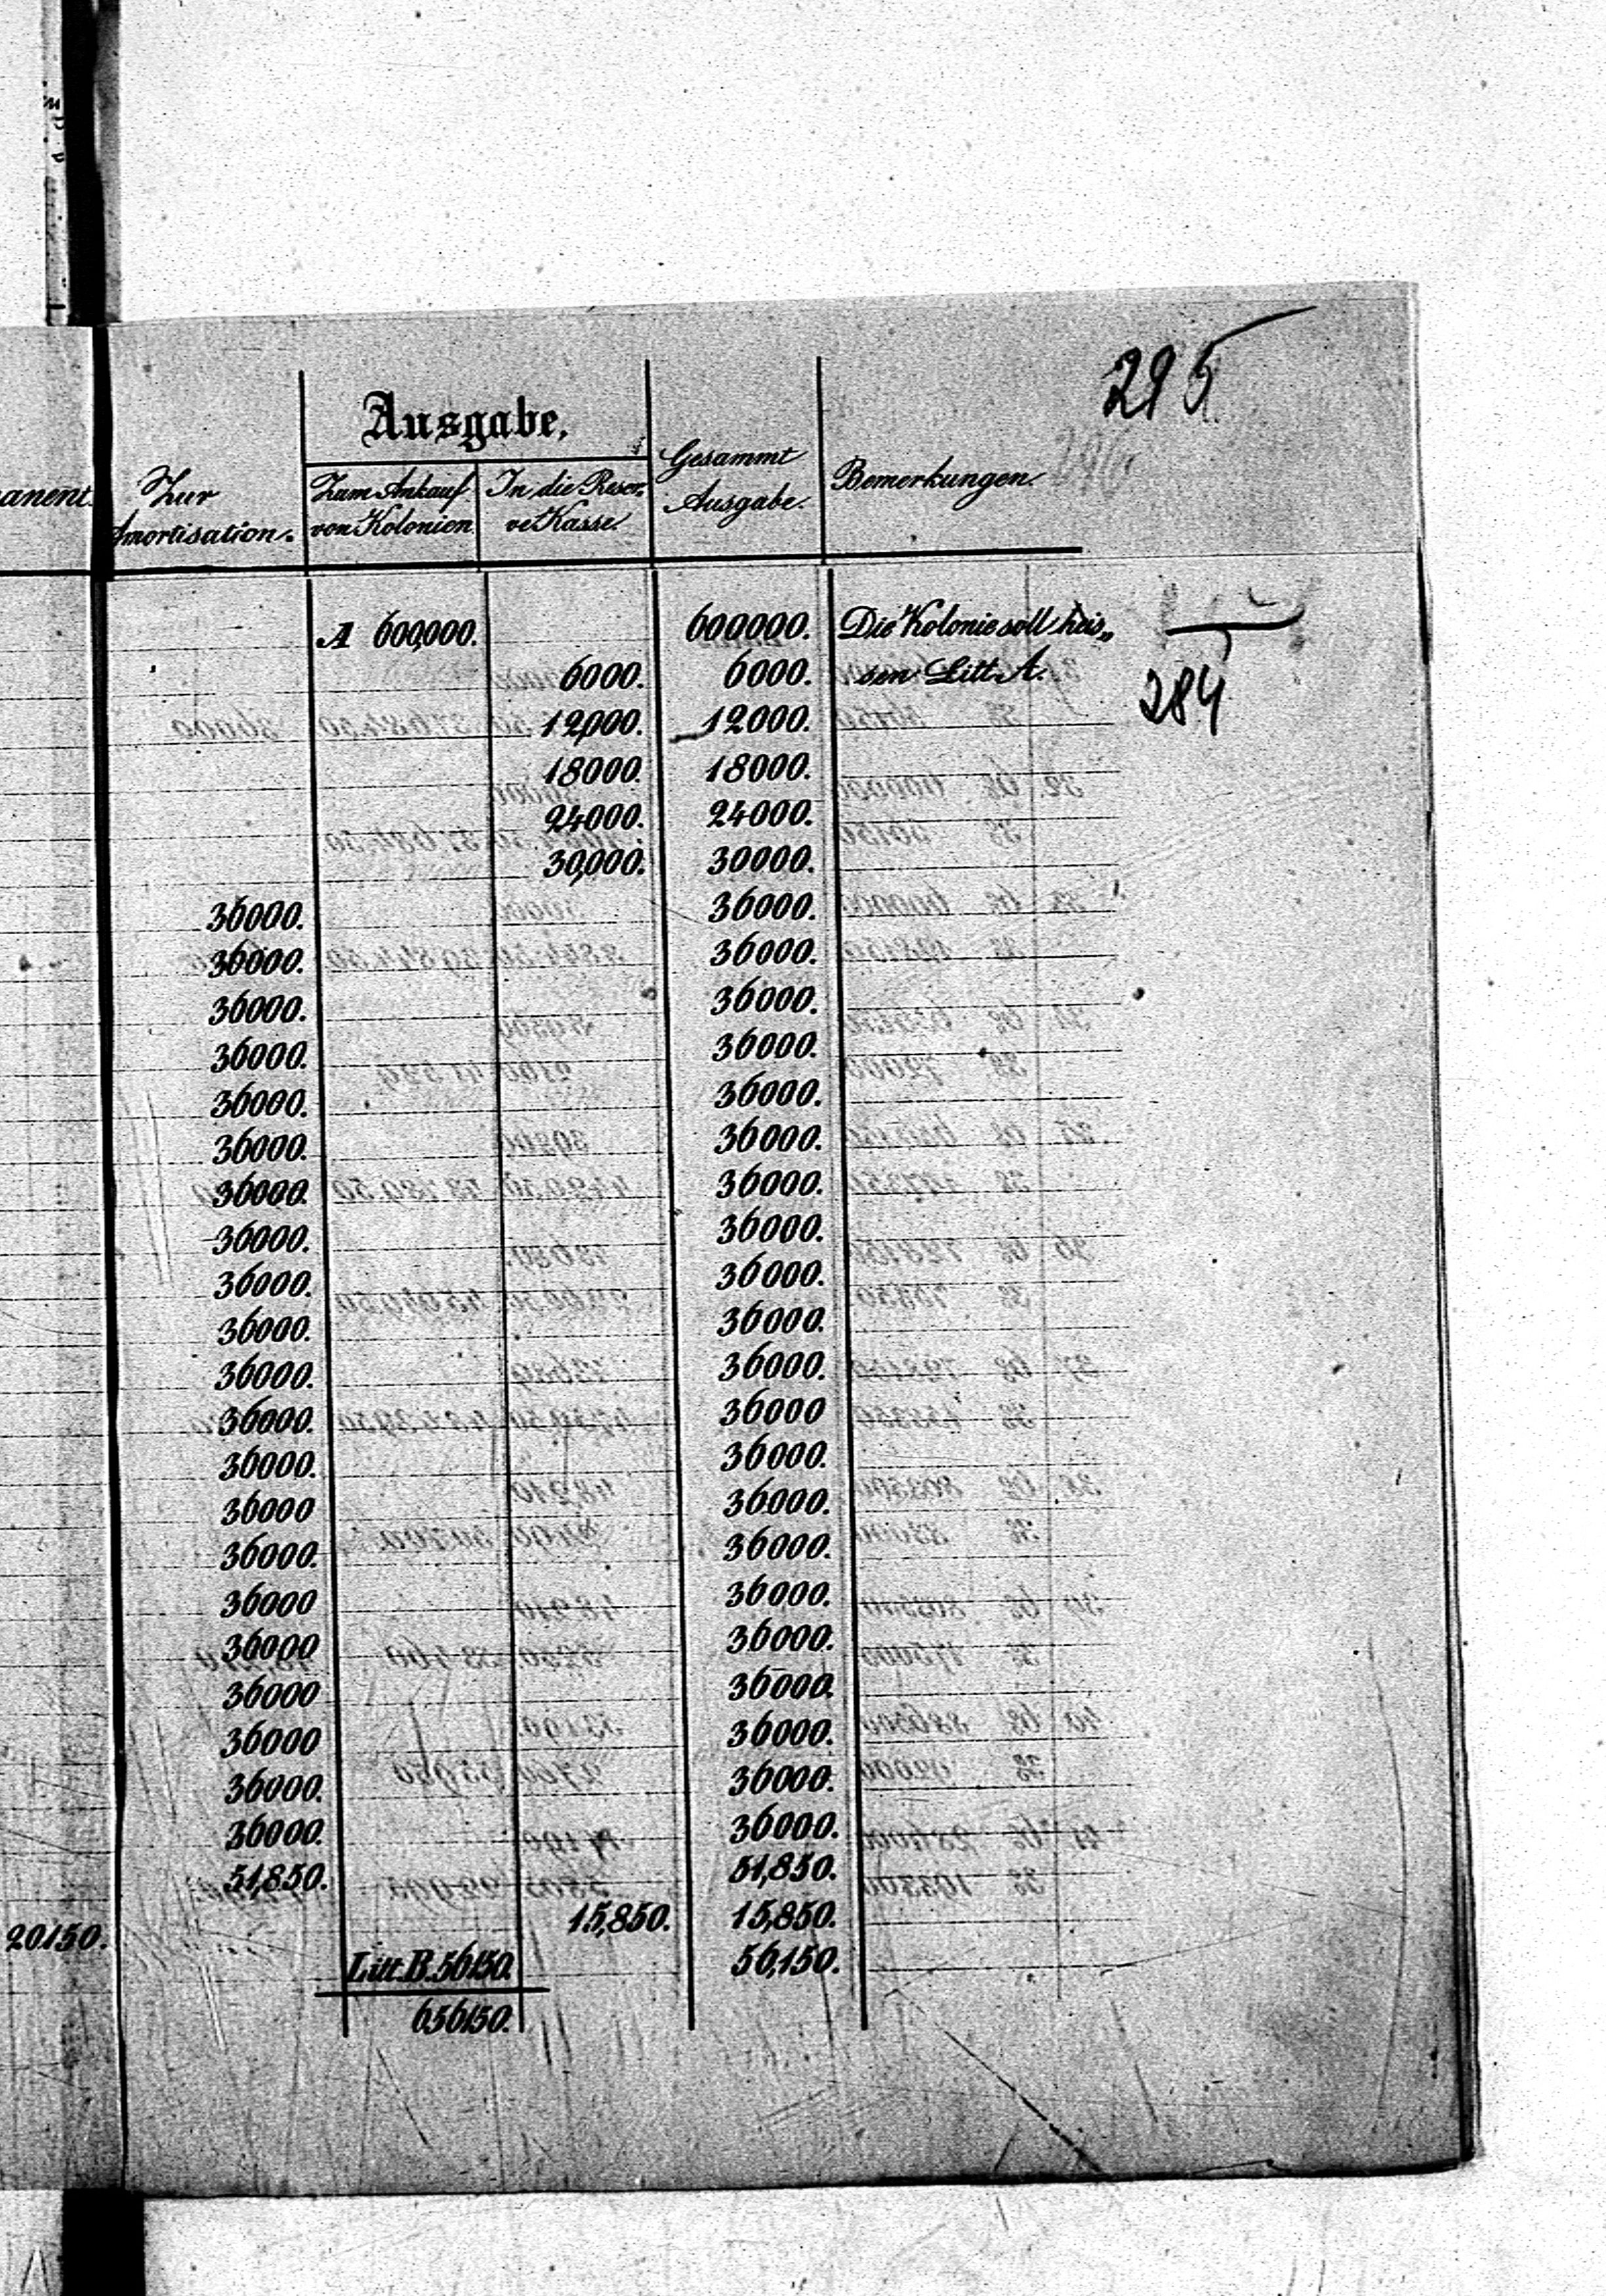 295
Ausgabe.
anent. Zur Amortisation. Zum Ankauf von Kolonien In die Reser- ve Kasse Gesammt Ausgabe. Bemerkungen.
A 600,000. 600000. Die Kolonie soll heis„
6000. 6000. sen Litt. A.
284
12,000. 12000.
18000. 18000.
24000. 24000.
30,000. 30000.
36000. 36000.
36000. 36000.
36000. 36000.
36000. 36000.
36000. 36000.
36000. 36000.
36000. 36000.
36000. 36000.
36000. 36000.
36000. 36000.
36000. 36000.
36000. 36000
36000. 36000.
36000 36000.
36000. 36000.
36000 36000.
36000 36000.
36000 36000.
36000 36000.
36000. 36000.
36000. 36000.
51,850. 51,850.
15,850. 15,850.
20150. Litt. B. 56150. 56,150.
656150.